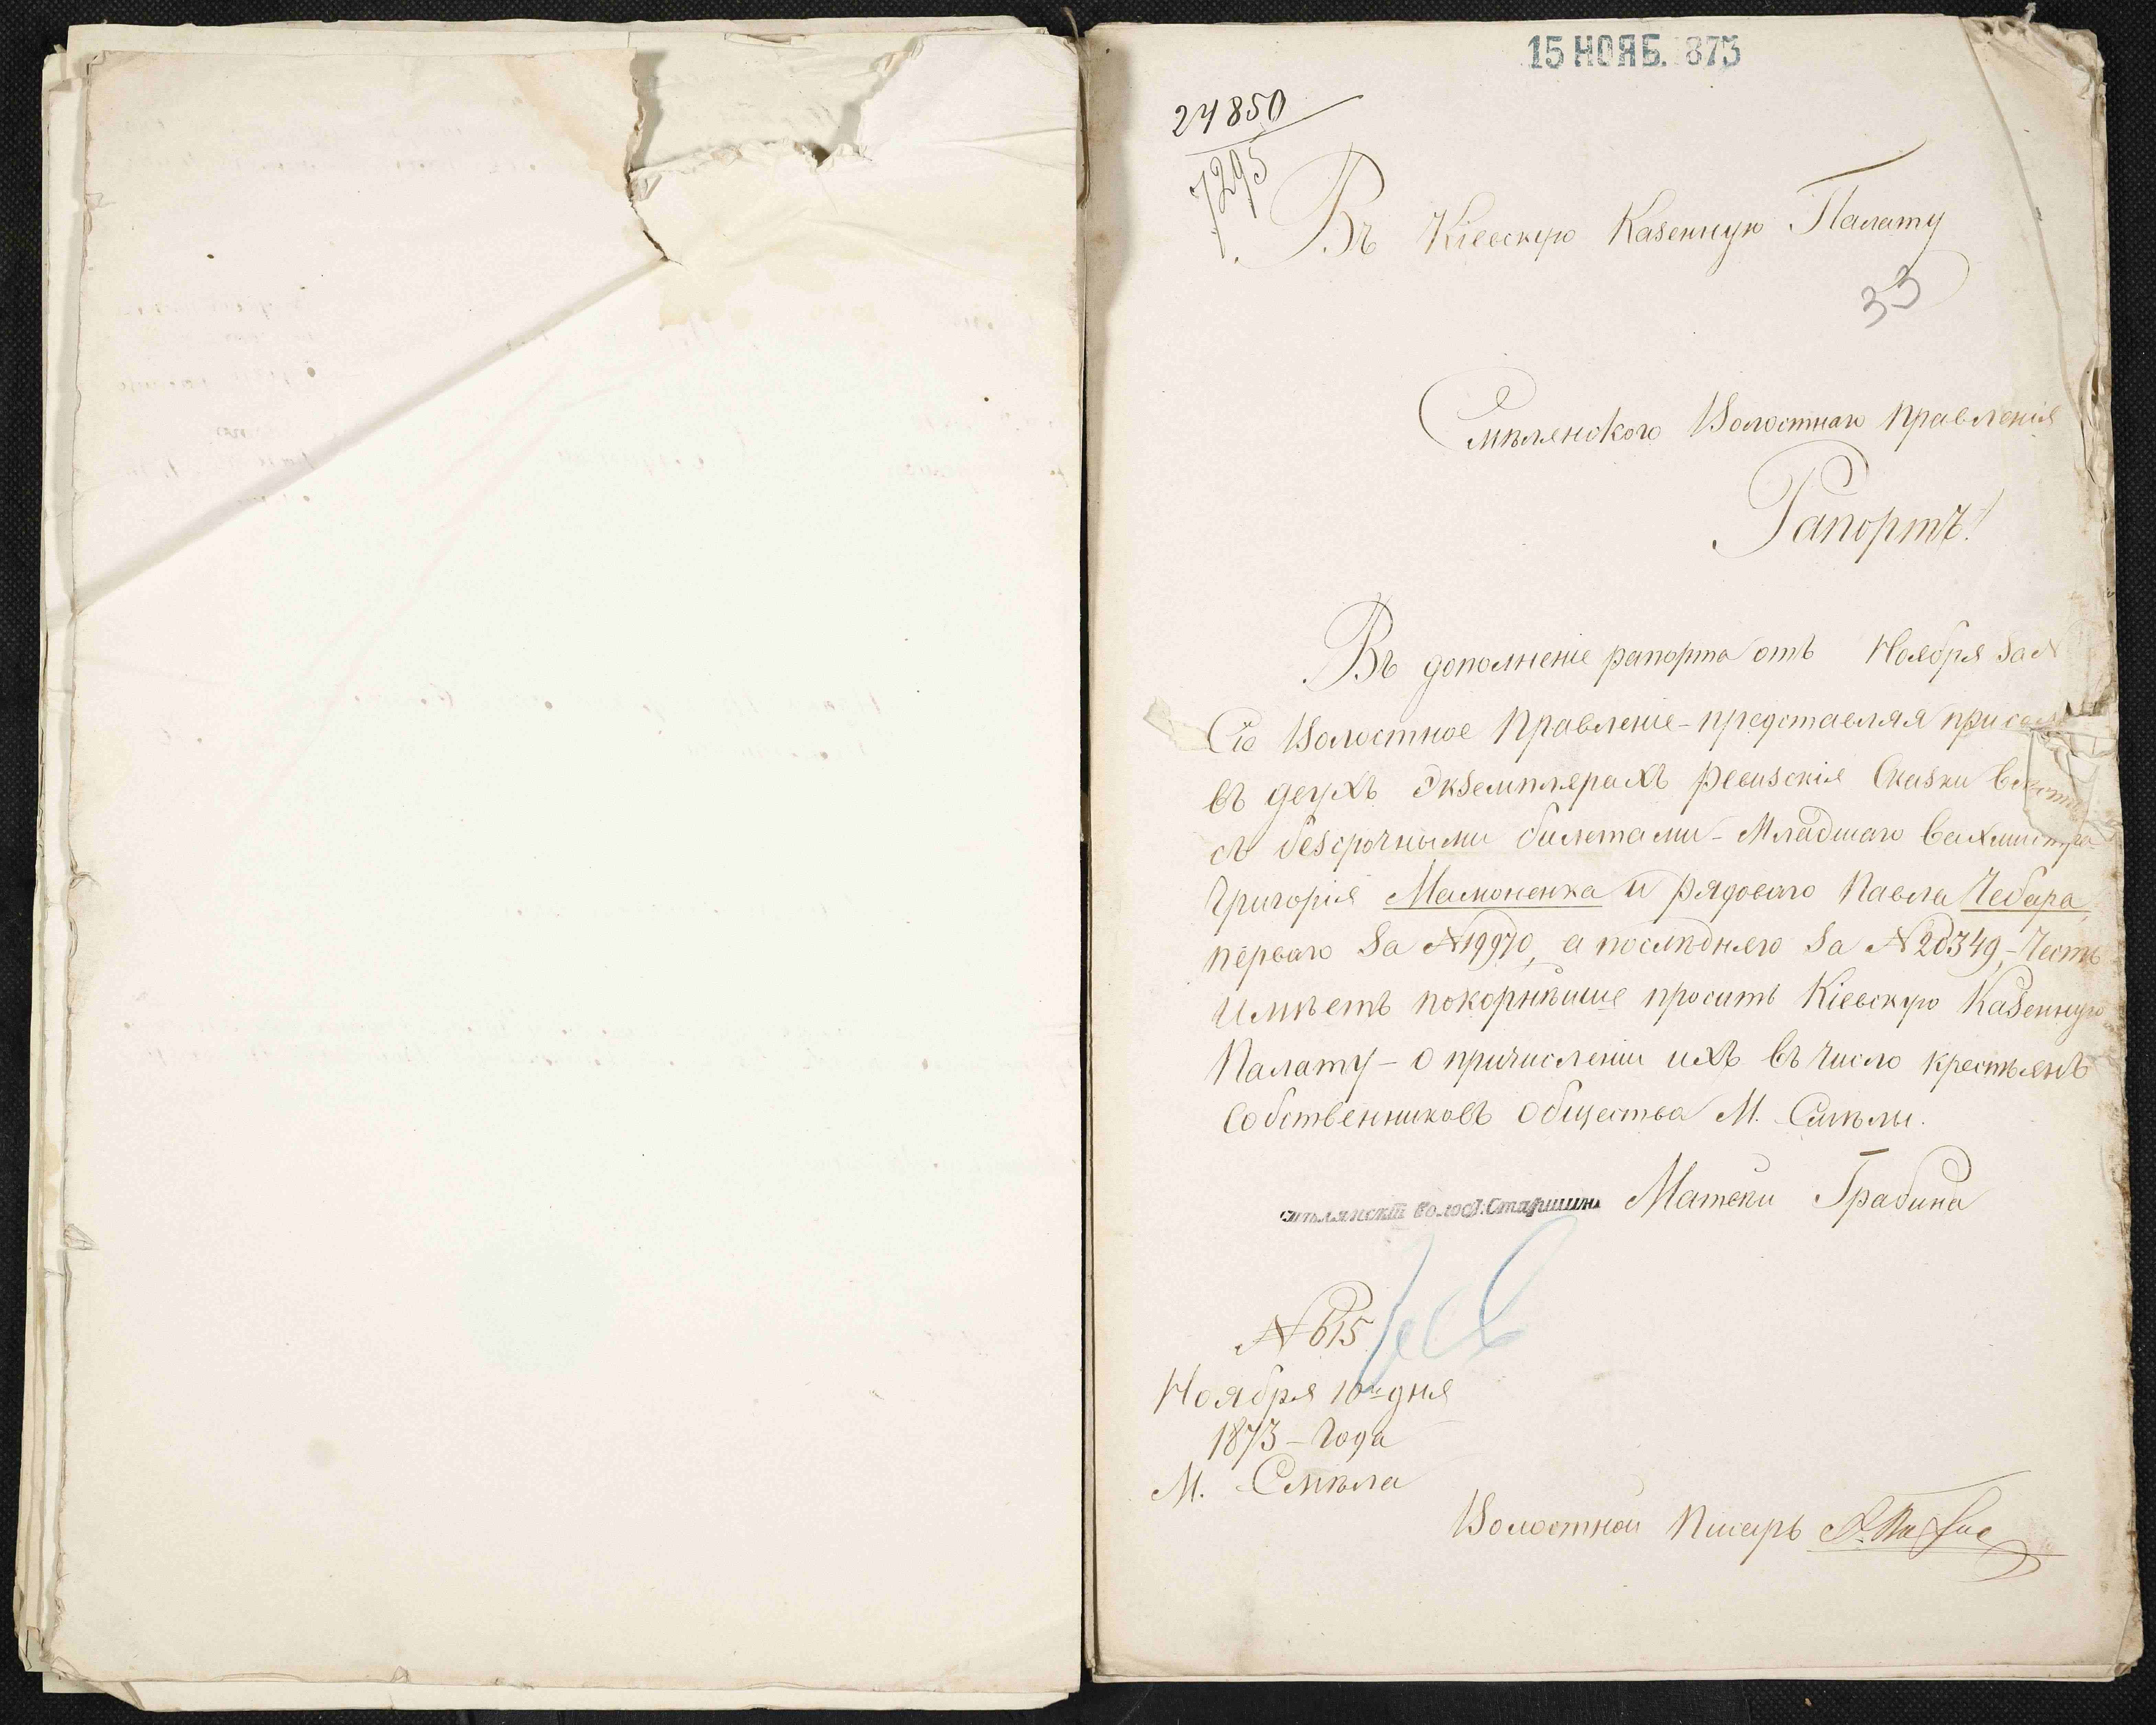 15 НОЯБ. 1873
24850
7295
Въ Кіевскую Казенную Палату
33
Смѣлянского Волостнаго Правленія
Рапортъ!
Въ дополненіе рапорта отъ Ноября за №
Сіе Волостное Правленіе – представляя при семъ
въ двухъ Экземплярахъ ревизскія Сказки вместѣ
съ безсрочными билетами – Младшаго Вахмистра
Григорія Мамоненка и рядоваго Павла Чебара,
перваго за № 19970, а послѣдняго за № 20349, – Честь
имѣетъ покорнѣише просить Кіевскую Казенную
Палату – о причисленіи ихъ въ число крестьянъ
Собственниковъ общества М. Смѣлы.
Смѣлянскій Волост. Старшина Матвѣй Грабина
№ 615
Ноября 10го дня
1873 – Года
М. Смѣла
Волостной Писарь